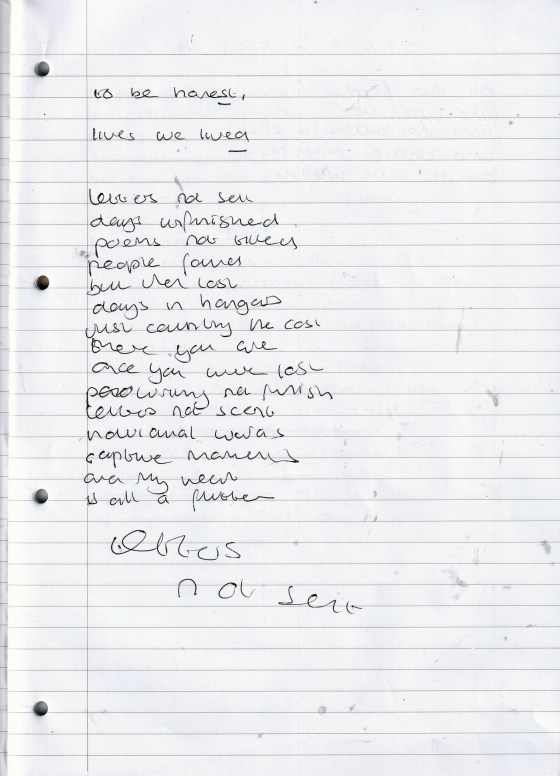 to be honest,
lives we lived
letters not sent
days unfinished
poems not titled
people found
but then lost
days in hangars
just counting the cost
there you are
once you were lost
writing not finish
letters not scent
words
capture moments
and my heart
is all a flutter
letters
not sent